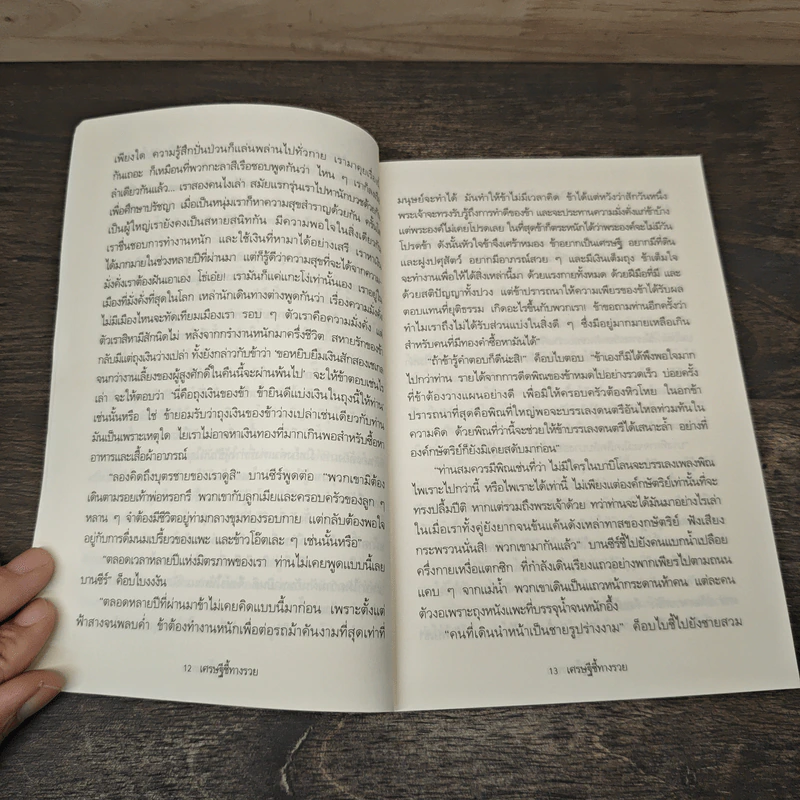 เพียงใด ความรู้สึกปั่นป่วนก็แล่นพล่านไปทั่วกาย เรามาคุยเรื่อง
กันเถอะ ก็เหมือนที่พวกกะลาสีเรือชอบพูดกันว่า ไหน ๆ เราก็ลง
ลำเดียวกันแล้ว... เราสองคนไงเล่า สมัยแรกรุ่นเราไปหานักบวชด้วยกัน
เพื่อศึกษาปรัชญา เมื่อเป็นหนุ่มเราก็หาความสุขสำราญด้วยกัน ครั้น
เป็นผู้ใหญ่เรายังคงเป็นสหายสนิทกัน มีความพอใจในสิ่งเดียวกัน
เราชื่นชอบการทำงานหนัก และใช้เงินที่หามาได้อย่างเสรี เราหาเงิน
ได้มากมายในช่วงหลายปีที่ผ่านมา แต่ก็รู้ดีว่าความสุขที่จะได้จากความ
มั่งคั่งเราต้องฝันเอาเอง โธ่เอ๋ย! เรามันก็แค่แกะโง่เท่านั้นเอง เราอยู่ใน
เมืองที่มั่งคั่งที่สุดในโลก เหล่านักเดินทางต่างพูดกันว่า เรื่องความมั่งคั่ง
ไม่มีเมืองไหนจะทัดเทียมเมืองเรา รอบ ๆ ตัวเราคือความมั่งคั่ง แต่
ตัวเราสิหามีสักนิดไม่ หลังจากกรำงานหนักมาครึ่งชีวิต สหายรักของข้า
กลับมีแต่ถุงเงินว่างเปล่า ทั้งยังกล่าวกับข้าว่า 'ขอหยิบยืมเงินสักสองเชเกล
จนกว่างานเลี้ยงของผู้สูงศักดิ์ในคืนนี้จะผ่านพ้นไป' จะให้ข้าตอบเช่นไร
เล่า จะให้ตอบว่า 'นี่คือถุงเงินของข้า ข้ายินดีแบ่งเงินในถุงนี้ให้ท่าน'
เช่นนั้นหรือ ใช่ ข้ายอมรับว่าถุงเงินของข้าว่างเปล่าเช่นเดียวกับท่าน
มันเป็นเพราะเหตุใด ไยเราไม่อาจหาเงินทองที่มากเกินพอสำหรับซื้อหา
อาหารและเสื้อผ้าอาภรณ์
"ลองคิดถึงบุตรชายของเราดูสิ" บานซีร์พูดต่อ "พวกเขามิต้อง
เดินตามรอยเท้าพ่อหรอกรึ พวกเขากับลูกเมียและครอบครัวของลูก ๆ
หลาน ๆ จำต้องมีชีวิตอยู่ท่ามกลางขุมทองรอบกาย แต่กลับต้องพอใจ
อยู่กับการดื่มนมเปรี้ยวของแพะ และข้าวโอ๊ตเละ ๆ เช่นนั้นหรือ"
"ตลอดเวลาหลายปีแห่งมิตรภาพของเรา ท่านไม่เคยพูดแบบนี้เลย
บานซีร์" ค็อบไบงงงัน
"ตลอดหลายปีที่ผ่านมาข้าไม่เคยคิดแบบนี้มาก่อน เพราะตั้งแต่
ฟ้าสางจนพลบค่ำ ข้าต้องทำงานหนักเพื่อต่อรถม้าคันงามที่สุดเท่าที่
12 เศรษฐีชี้ทางรวย
มนุษย์จะทำได้ มันทำให้ข้าไม่มีเวลาคิด ข้าได้แต่หวังว่าสักวันหนึ่ง
พระเจ้าจะทรงรับรู้ถึงการทำดีของข้า และจะประทานความมั่งคั่งแก่ข้าบ้าง
แต่พระองค์ไม่เคยโปรดเลย ในที่สุดข้าก็ตระหนักได้ว่าพระองค์จะไม่มีวัน
โปรดข้า ดังนั้นหัวใจข้าจึงเศร้าหมอง ข้าอยากเป็นเศรษฐี อยากมีที่ดิน
และฝูงปศุสัตว์ อยากมีอาภรณ์สวย ๆ และมีเงินเต็มถุง ข้าเต็มใจ
จะทำงานเพื่อให้ได้สิ่งเหล่านี้มา ด้วยแรงกายทั้งหมด ด้วยฝีมือที่มี และ
ด้วยสติปัญญาทั้งปวง แต่ข้าปรารถนาให้ความเพียรของข้าได้รับผล
ตอบแทนที่ยุติธรรม เกิดอะไรขึ้นกับพวกเรา! ข้าขอถามท่านอีกครั้งว่า
ทำไมเราถึงไม่ได้รับส่วนแบ่งในสิ่งดี ๆ ซึ่งมีอยู่มากมายเหลือเกิน
สำหรับคนที่มีทองคำซื้อหามันได้"
"ถ้าข้ารู้คำตอบก็ดีน่ะสิ!" ค็อบไบตอบ "ข้าเองก็มิได้พึงพอใจมาก
ไปกว่าท่าน รายได้จากการดีดพิณของข้าหมดไปอย่างรวดเร็ว บ่อยครั้ง
ที่ข้าต้องวางแผนอย่างดี เพื่อมิให้ครอบครัวต้องหิวโหย ในอกข้า
ปรารถนาที่สุดคือพิณที่ใหญ่พอจะบรรเลงดนตรีอันไหลท่วมท้นใน
ความคิด ด้วยพิณที่ว่านี้จะช่วยให้ข้าบรรเลงดนตรีได้เสนาะล้ำ อย่างที่
องค์กษัตริย์ก็ยังมิเคยสดับมาก่อน"
"ท่านสมควรมีพิณเช่นที่ว่า ไม่มีใครในบาบิโลนจะบรรเลงเพลงพิณ
ไพเราะไปกว่านี้ หรือไพเราะได้เท่านี้ ไม่เพียงแต่องค์กษัตริย์เท่านั้นที่จะ
ทรงปลื้มปีติ หากแต่รวมถึงพระเจ้าด้วย ทว่าท่านจะได้มันมาอย่างไรเล่า
ในเมื่อเราทั้งคู่ยังยากจนข้นแค้นดังเหล่าทาสของกษัตริย์ ฟังเสียง
กระพรวนนั่นสิ! พวกเขามากันแล้ว" บานซีร์ชี้ไปยังคนแบกน้ำเปลือย
ครึ่งกายเหงื่อแตกซิก ที่กำลังเดินเรียงแถวอย่างพากเพียรไปตามถนน
แคบ ๆ จากแม่น้ำ พวกเขาเดินเป็นแถวหน้ากระดานห้าคน แต่ละคน
ตัวงอเพราะถุงหนังแพะที่บรรจุน้ำจนหนักอึ้ง
"คนที่เดินนำหน้าเป็นชายรูปร่างงาม" ค็อบไบชี้ไปยังชายสวม
13 เศรษฐีชี้ทางรวย